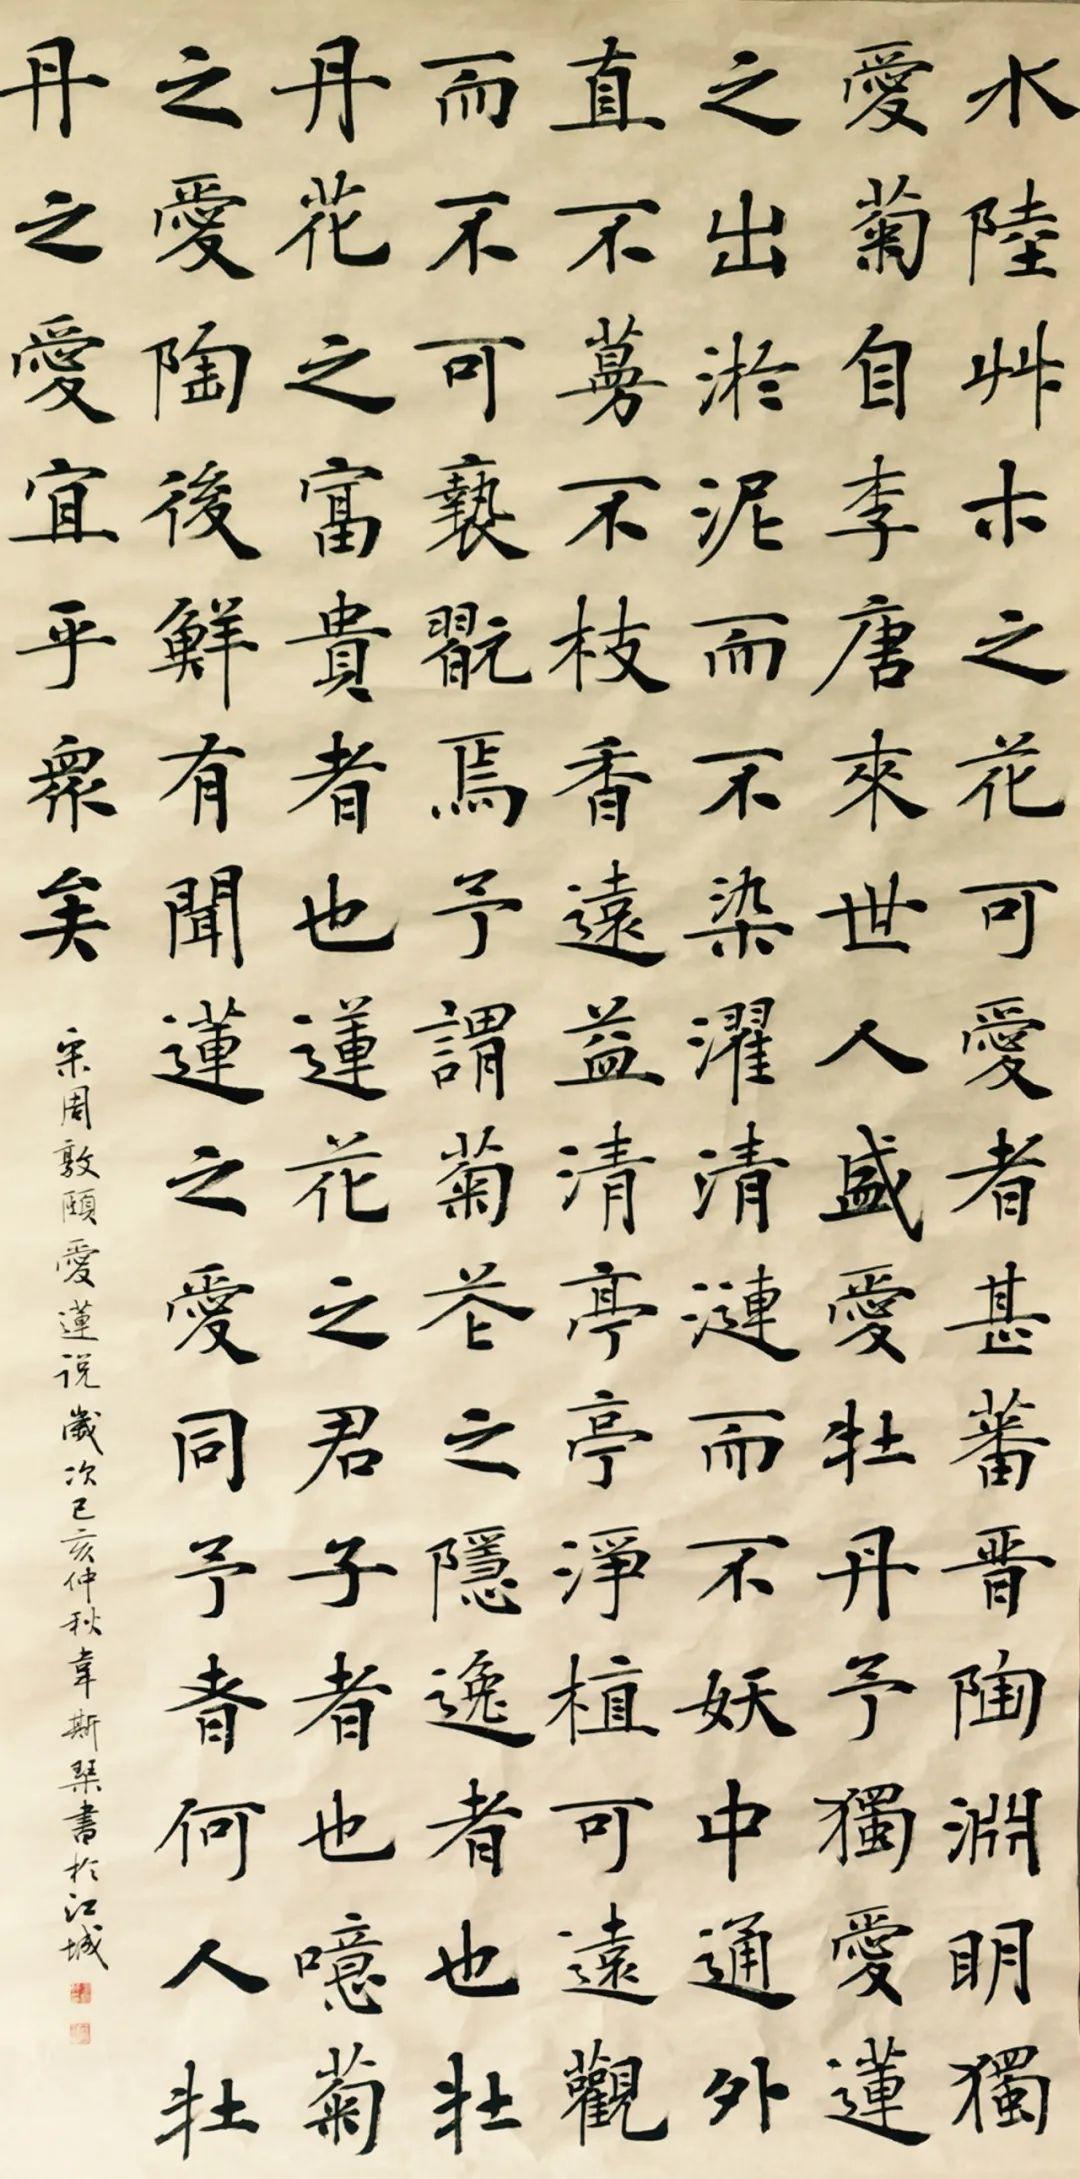 水陸艸木之花可愛者甚蕃晋陶淵明獨
愛菊自李唐來世人盛愛牡丹予獨愛蓮
之出淤泥而不染濯清漣而不妖中通外
直不蔓不枝香遠益清亭亭淨植可遠觀
而不可褻翫焉予謂菊花之隱逸者也牡
丹花之富貴者也蓮花之君子者也噫菊
之愛陶後鮮有聞蓮之愛同予者何人牡
丹之愛宜乎衆矣
宋周敦頤愛蓮说歲次己亥仲秋韋斯琹書於江城